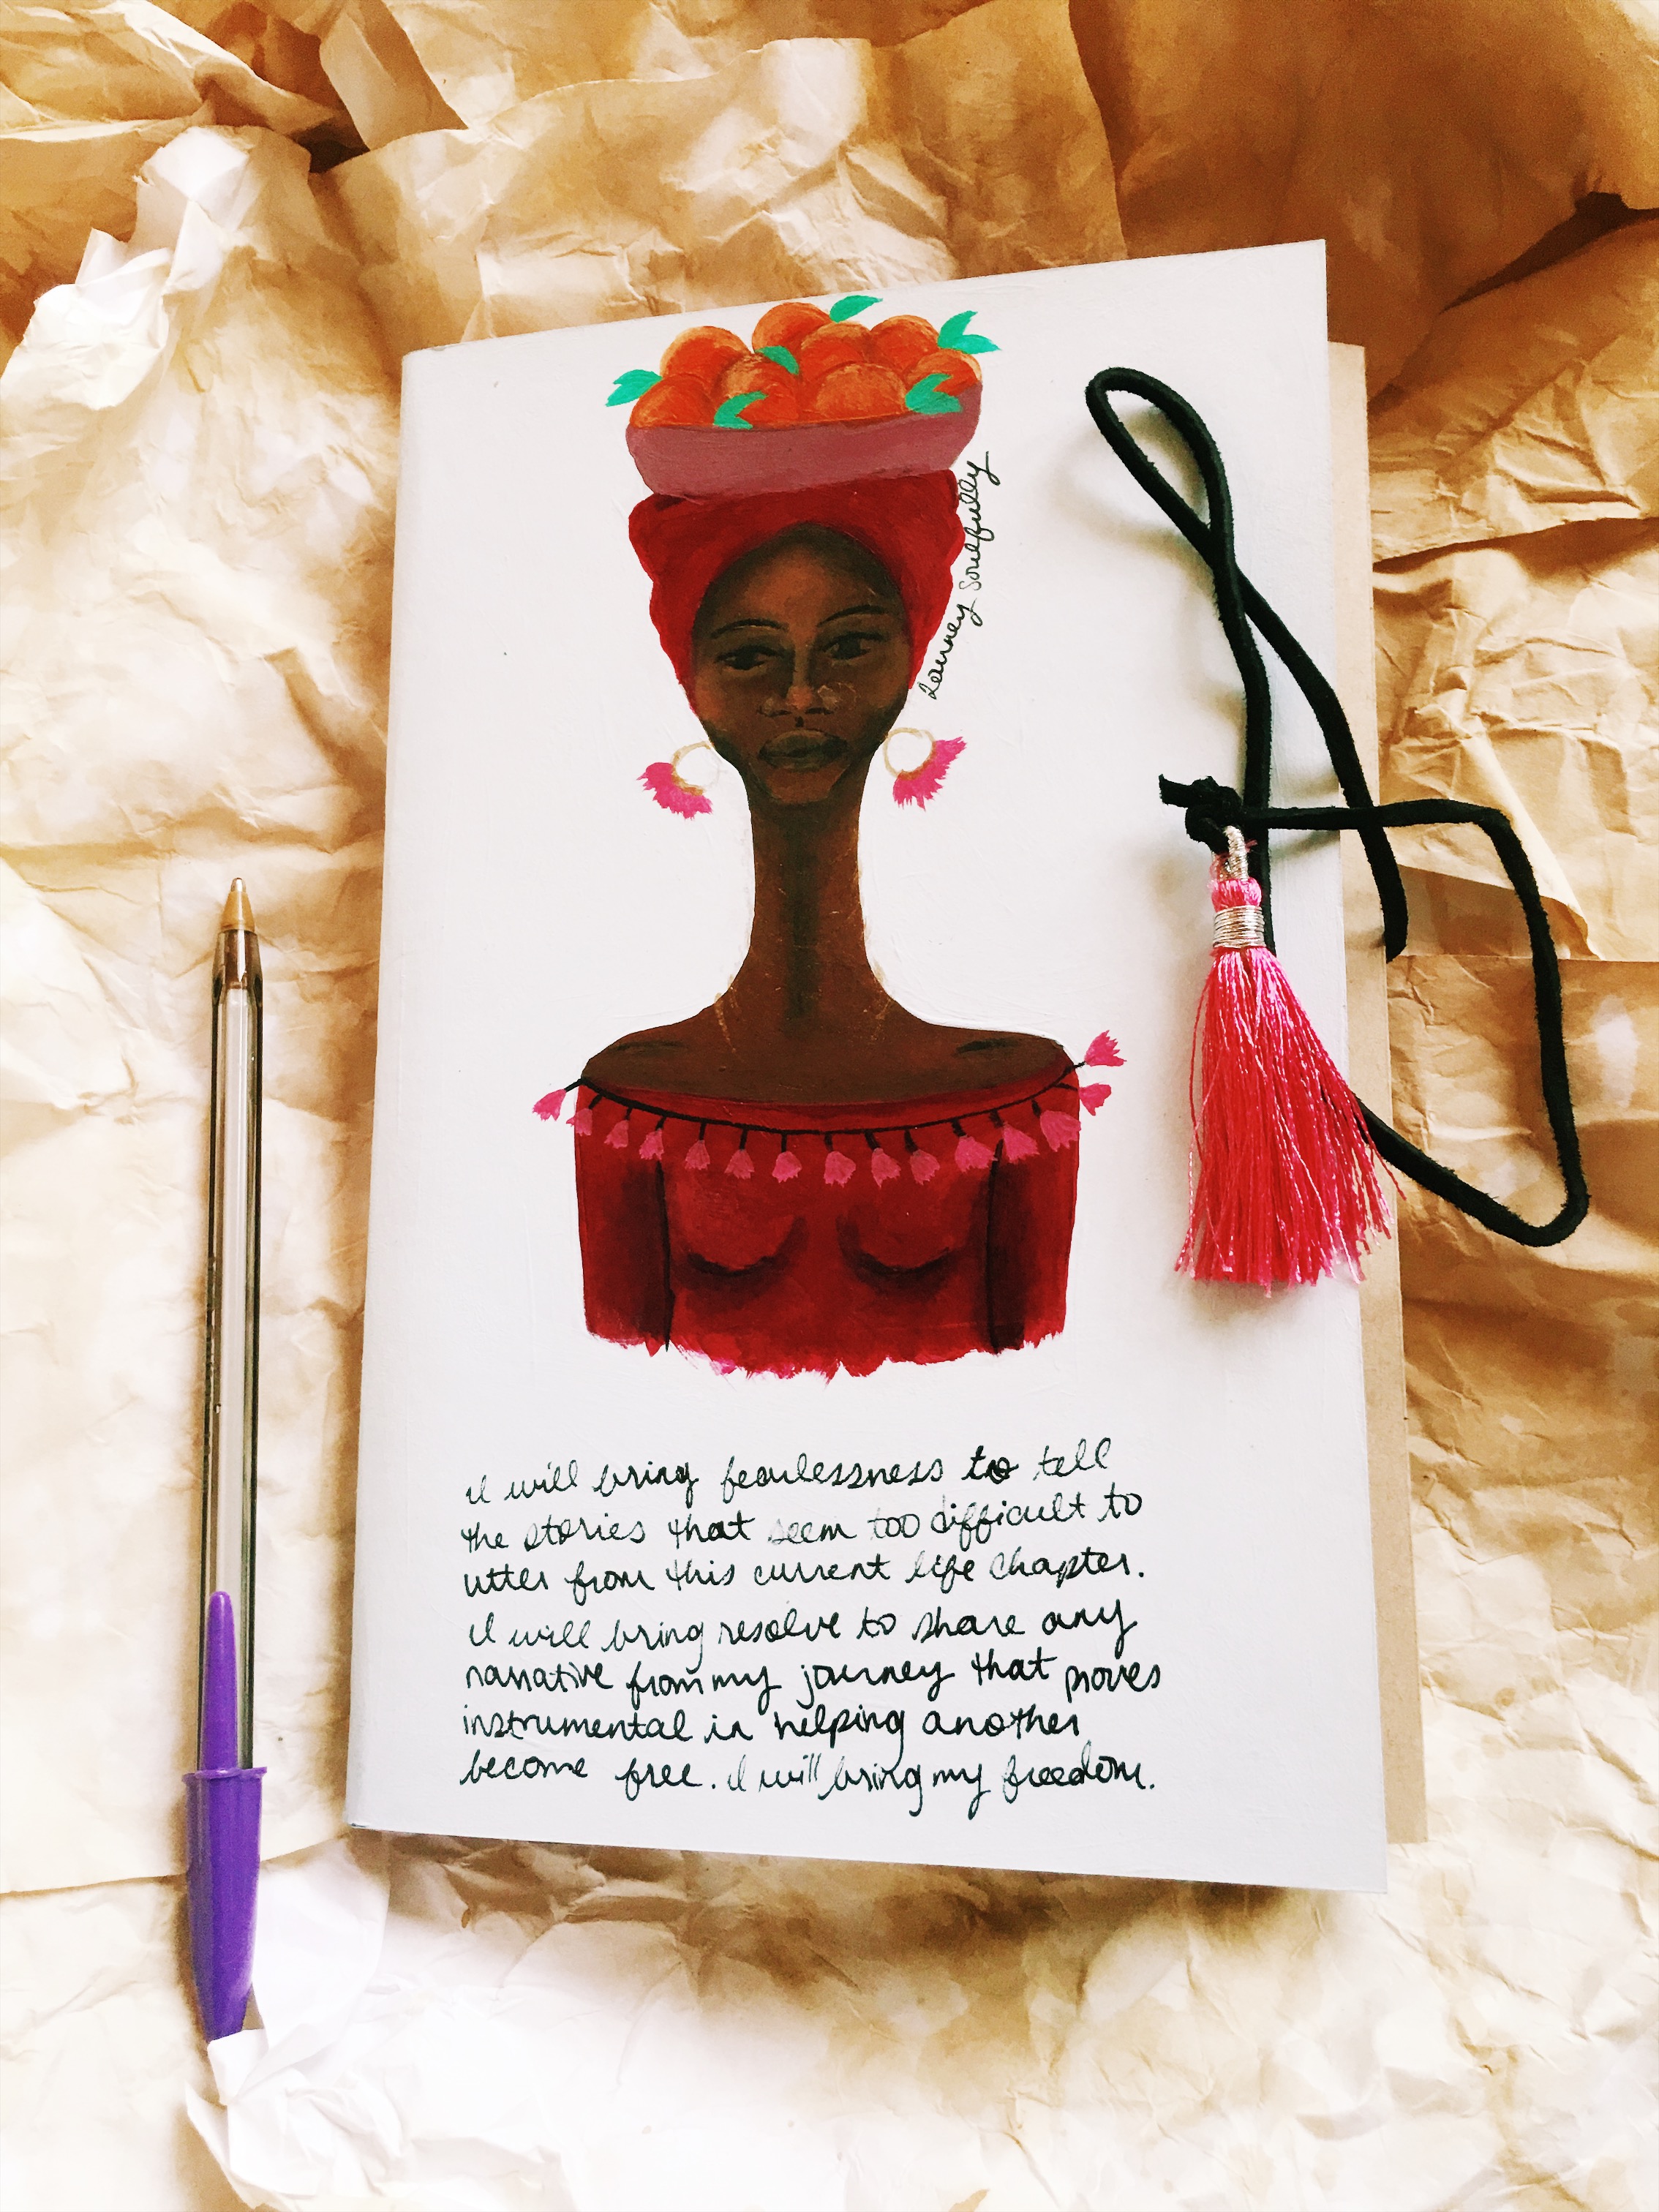 Journey Soulfully
I will bring fearlessness to tell
the stories that seem too difficult to
utter from this current life chapter.
I will bring resolve to share any
narrative from my journey that proves
instrumental in helping another
become free. I will bring my freedom.